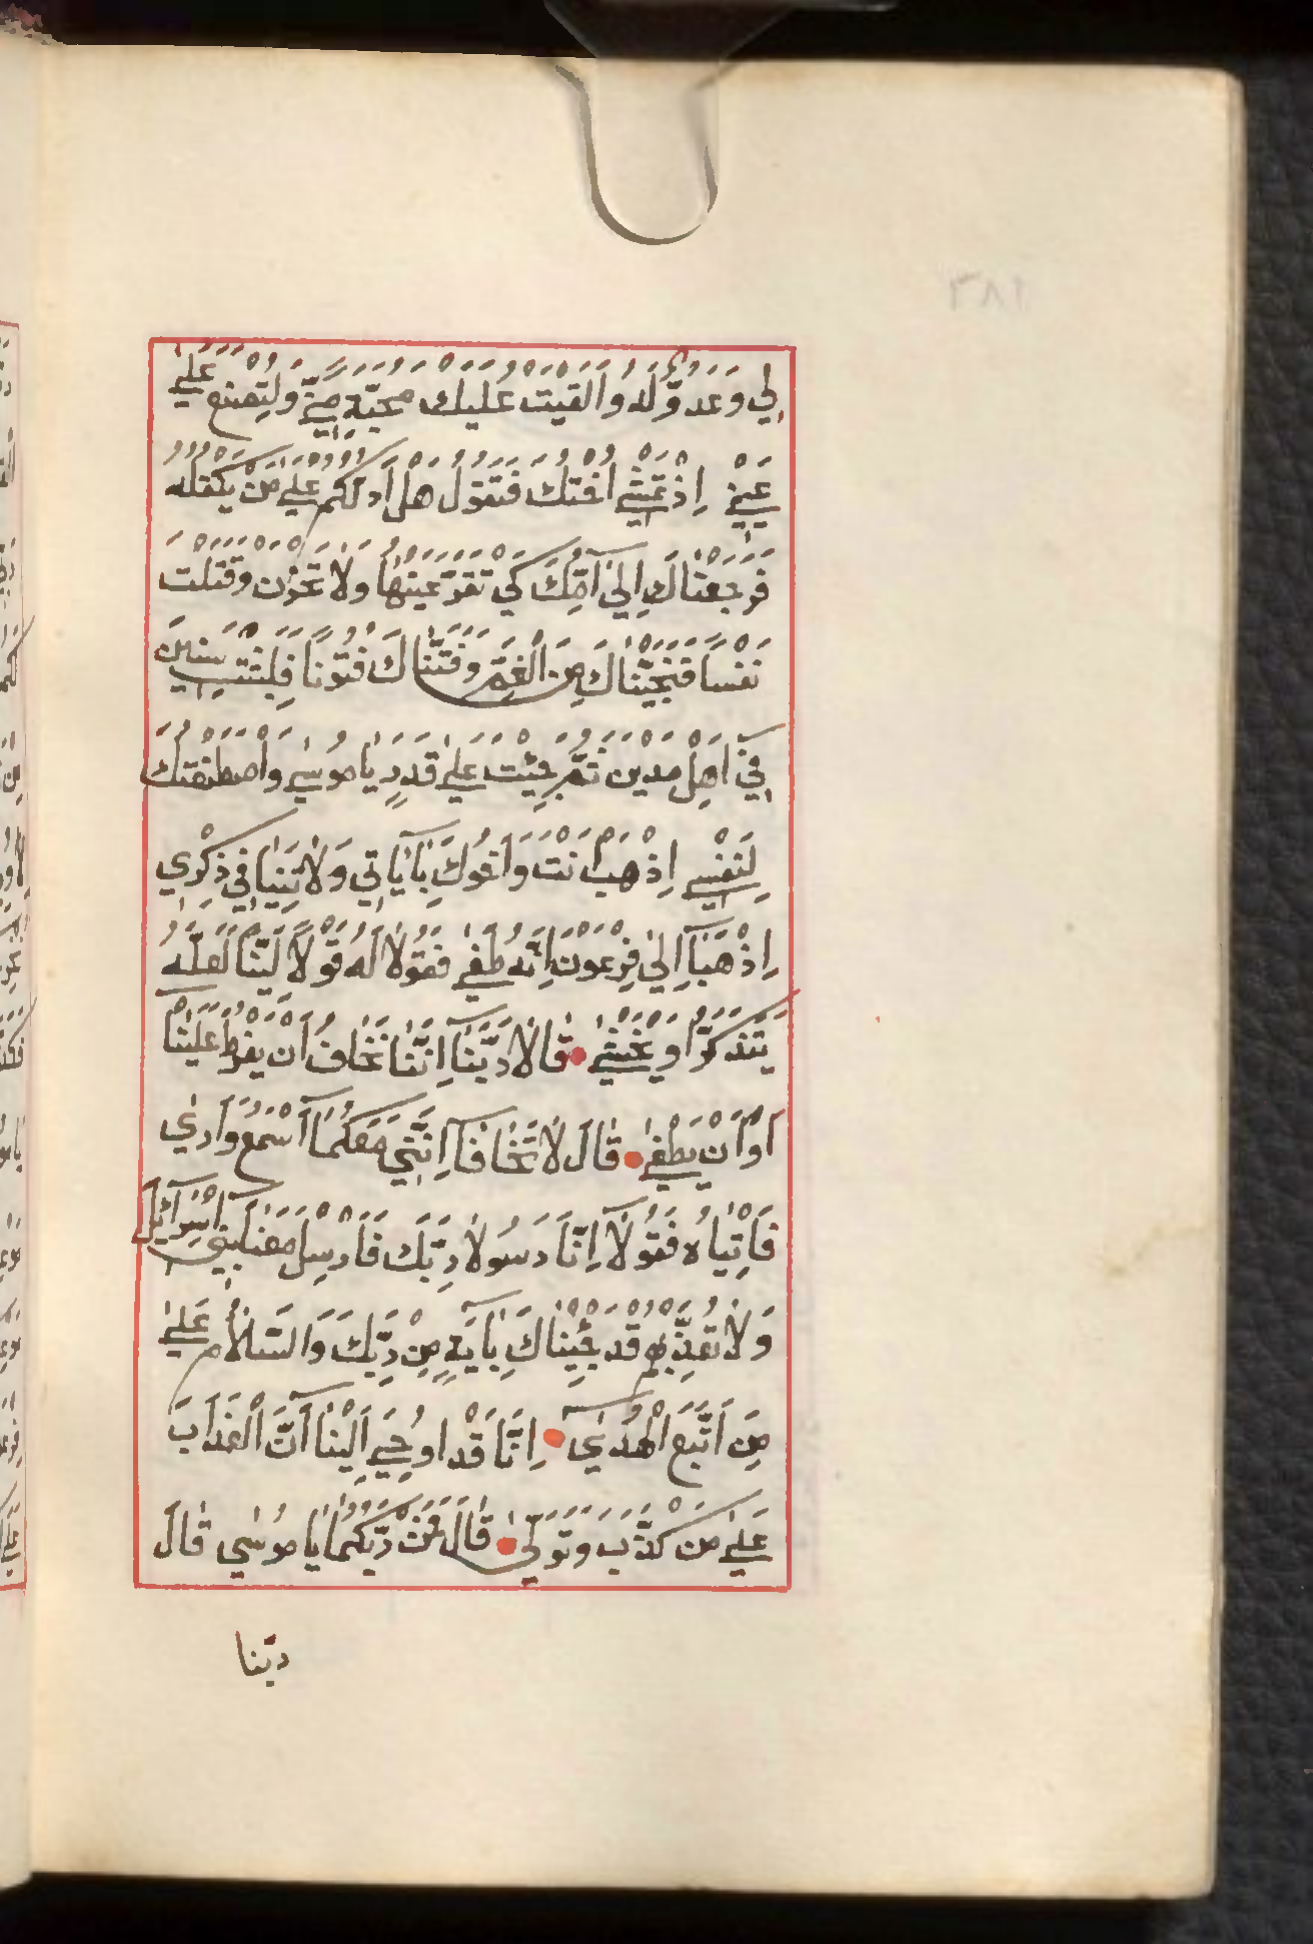 لِي وَعَدُوٌّ لَهُ وَأَلْقَيْتُ عَلَيْكَ مَحَبَّةً مِنِّي وَلِتُصْنَعَ عَلَىٰ
عَيْنِي إِذْ تَمْشِي أُخْتُكَ فَتَقُولُ هَلْ أَدُلُّكُمْ عَلَىٰ مَنْ يَكْفُلُهُ
فَرَجَعْنَاكَ إِلَىٰ أُمِّكَ كَيْ تَقَرَّ عَيْنُهَا وَلَا تَحْزَنَ وَقَتَلْتَ
نَفْسًا فَنَجَّيْنَاكَ مِنَ الْغَمِّ وَفَتَنَّاكَ فُتُونًا فَلَبِثْتَ سِنِينَ
فِي أَهْلِ مَدْيَنَ ثُمَّ جِئْتَ عَلَىٰ قَدَرٍ يَا مُوسَىٰ وَاصْطَنَعْتُكَ
لِنَفْسِي اِذْهَبْ أَنْتَ وَأَخُوكَ بِآيَاتِي وَلَا تَنِيَا فِي ذِكْرِي
اِذْهَبَا إِلَىٰ فِرْعَوْنَ إِنَّهُ طَغَىٰ فَقُولَا لَهُ قَوْلًا لَيِّنًا لَعَلَّهُ
يَتَذَكَّرُ أَوْ يَخْشَىٰ قَالَا رَبَّنَا إِنَّنَا نَخَافُ أَنْ يَفْرُطَ عَلَيْنَا
أَوْ أَنْ يَطْغَىٰ قَالَ لَا تَخَافَا إِنَّنِي مَعَكُمَا أَسْمَعُ وَأَرَىٰ
فَأْتِيَاهُ فَقُولَا إِنَّا رَسُولَا رَبِّكَ فَأَرْسِلْ مَعَنَا بَنِي إِسْرَآئِيلَ
وَلَا تُعَذِّبْهُمْ قَدْ جِئْنَاكَ بِآيَةٍ مِنْ رَبِّكَ وَالسَّلَامُ عَلَىٰ
مَنِ اتَّبَعَ الْهُدَىٰ إِنَّا قَدْ أُوحِيَ إِلَيْنَا أَنَّ الْعَذَابَ
عَلَىٰ مَنْ كَذَّبَ وَتَوَلَّىٰ قَالَ فَمَنْ رَبُّكُمَا يَا مُوسَىٰ قَالَ
رَبُّنَا